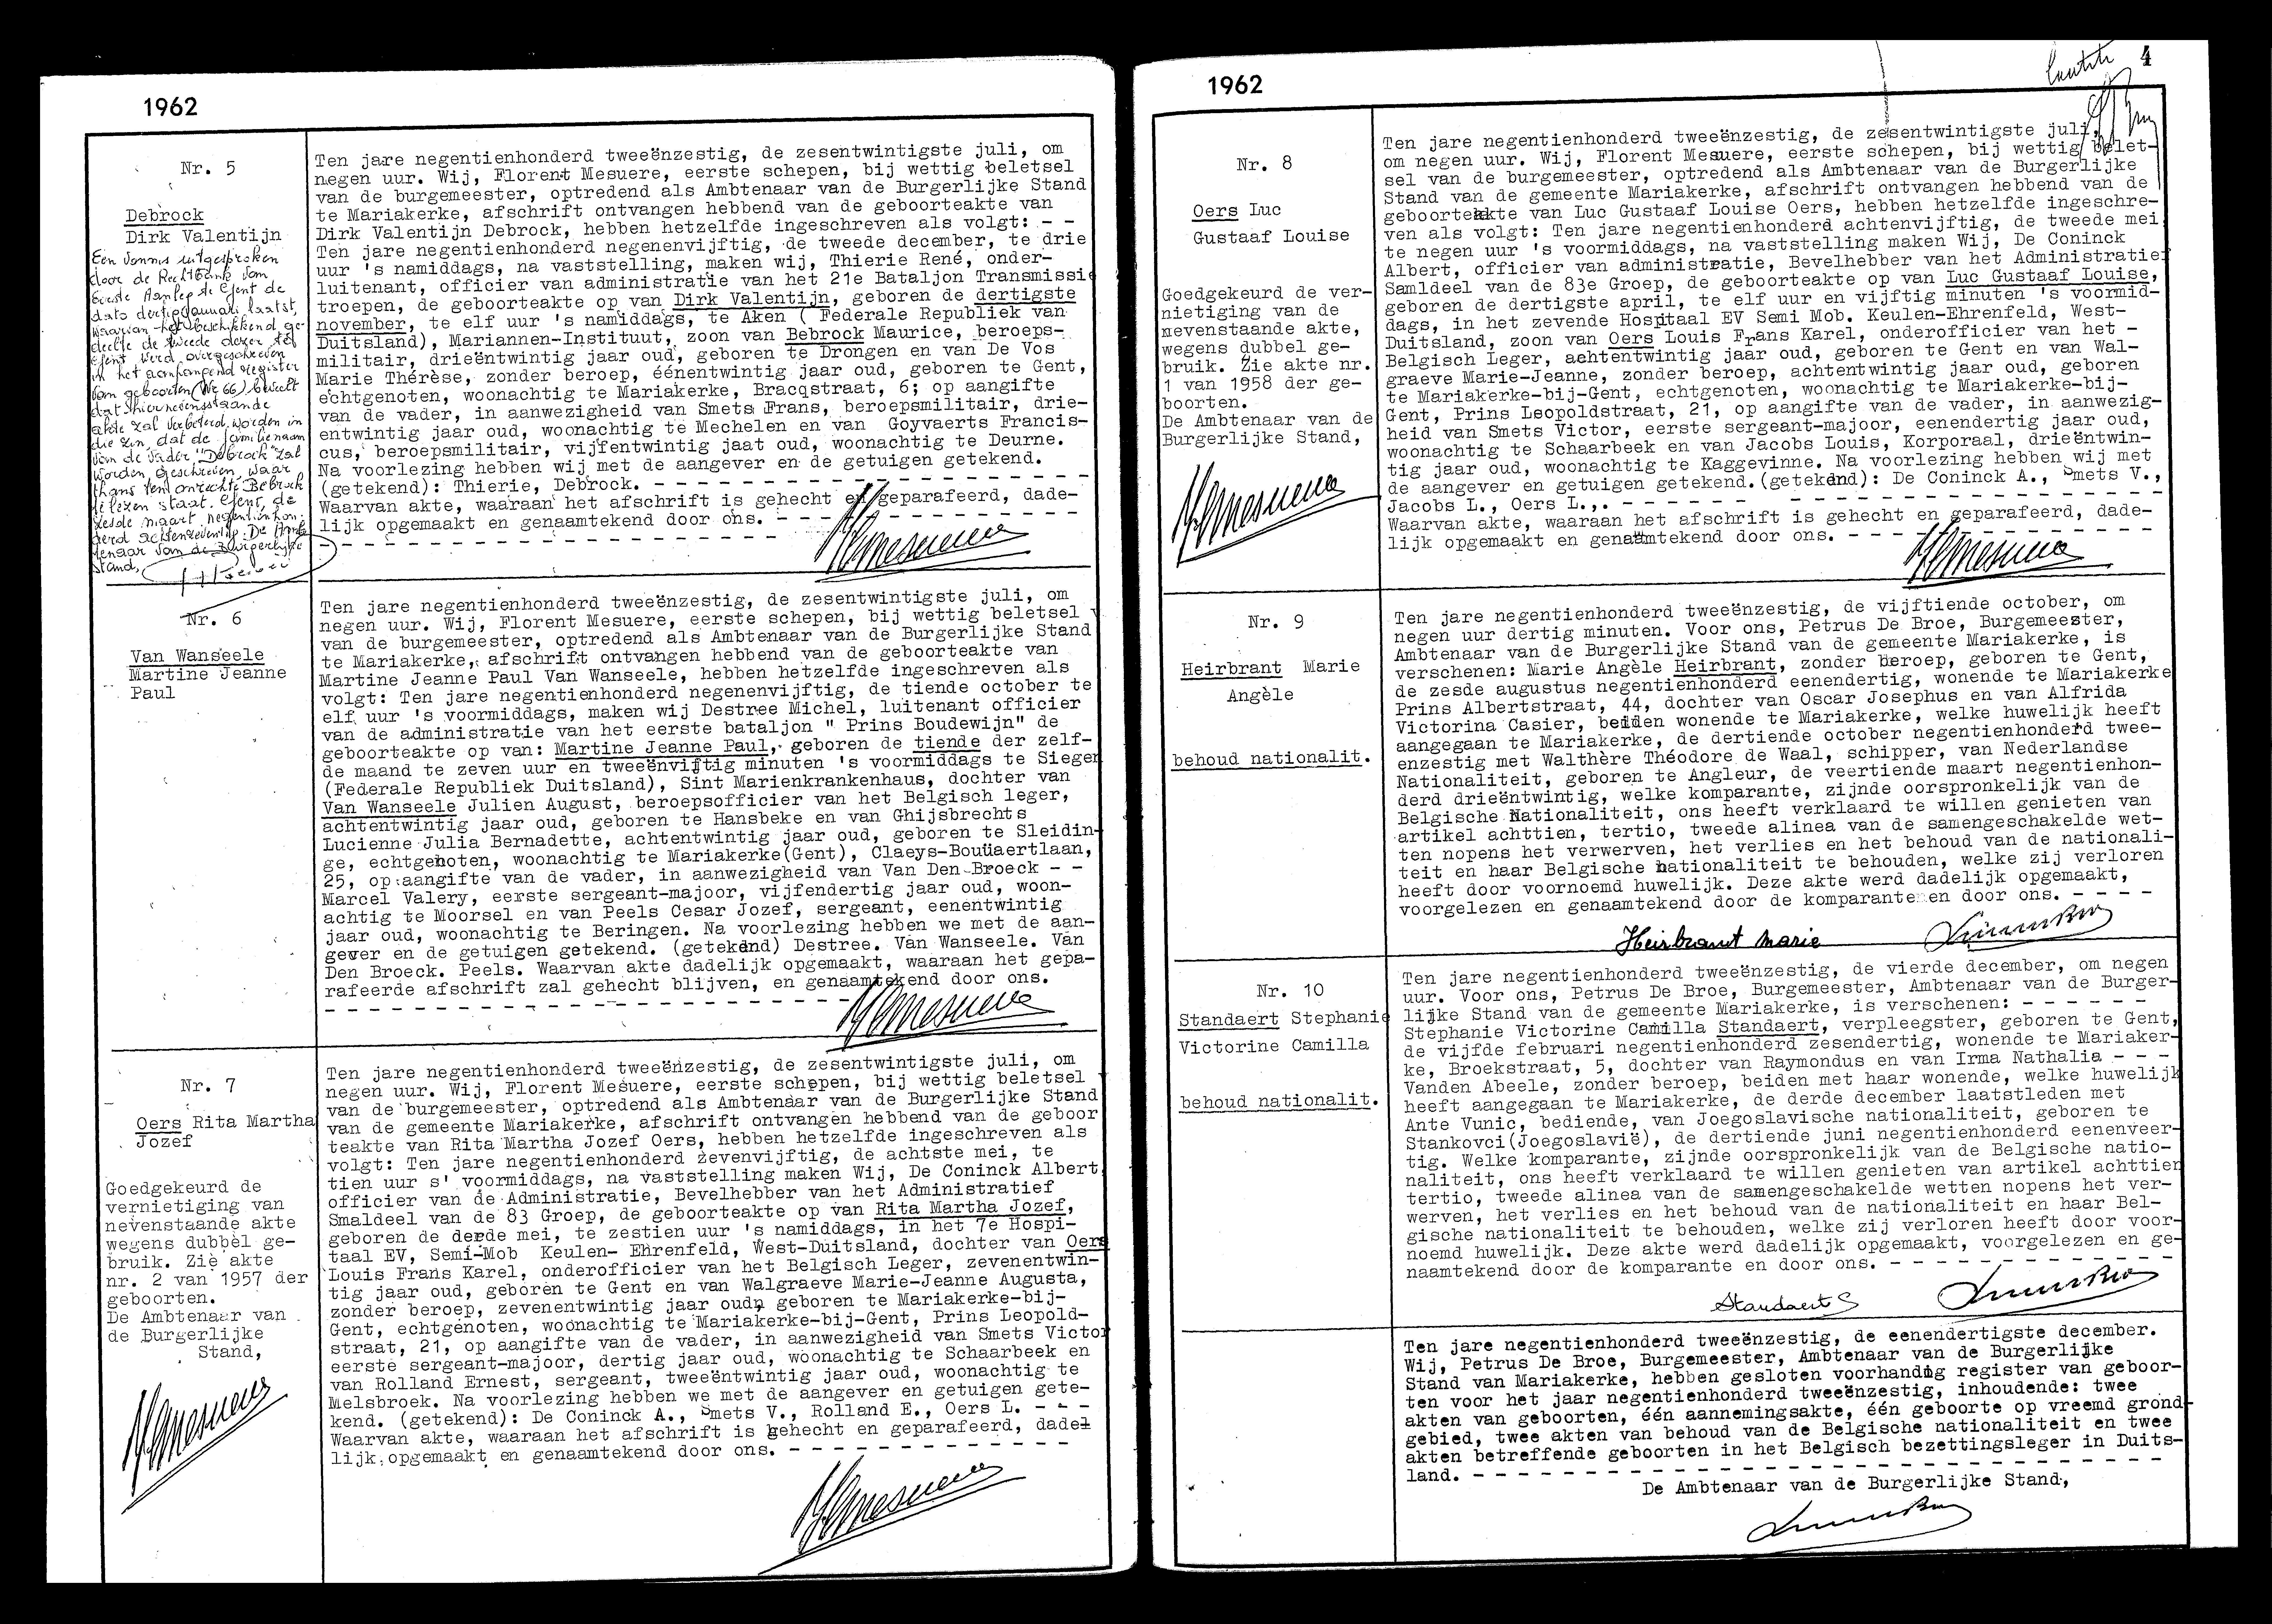 1962
Nr. 5
Debrock
Dirk Valentijn
Een vonnis uitgesproken
door de Rechtbank van
Eerste Aanleg te Gent de
dato dertig januari laatst,
waarvan het beschikkend ge-
deelte de tweede dezer te
Gent werd overgeschreven
in het aanvangend register
van geboorten (Nr 66) beveelt
dat hiernevenstaande
akte zal verbeterd worden in
die zin, dat de familienaam
van de vader "Debrock" zal
worden geschreven waar
thans ten onrechte Bebrock
te lezen staat. Gent, de
zesde maart negentienhon-
derd achtenzeventig. De Amb-
tenaar van de Burgerlijke
Stand,
Ten jare negentienhonderd tweeënzestig, de zesentwintigste juli, om
negen uur. Wij, Florent Mesuere, eerste schepen, bij wettig beletsel
van de burgemeester, optredend als Ambtenaar van de Burgerlijke Stand
te Mariakerke, afschrift ontvangen hebbend van de geboorteakte van
Dirk Valentijn Debrock, hebben hetzelfde ingeschreven als volgt: - -
Ten jare negentienhonderd negenenvijftig, de tweede december, te drie
uur 's namiddags, na vaststelling, maken wij, Thierie René, onder-
luitenant, officier van administratie van het 21e Bataljon Transmissie
troepen, de geboorteakte op van Dirk Valentijn, geboren de dertigste
november, te elf uur 's namiddags, te Aken ( Federale Republiek van
Duitsland), Mariannen-Instituut, zoon van Bebrock Maurice, beroeps-
militair, drieëntwintig jaar oud, geboren te Drongen en van De Vos
Marie Thérèse, zonder beroep, éénentwintig jaar oud, geboren te Gent,
echtgenoten, woonachtig te Mariakerke, Bracqstraat, 6; op aangifte
van de vader, in aanwezigheid van Smets Frans, beroepsmilitair, drie-
entwintig jaar oud, woonachtig te Mechelen en van Goyvaerts Francis-
cus, beroepsmilitair, vijfentwintig jaat oud, woonachtig te Deurne.
Na voorlezing hebben wij met de aangever en de getuigen getekend.
(getekend): Thierie, Debrock. - - - - - - - - - - - - - - - - - - - -
Waarvan akte, waaraan het afschrift is gehecht en geparafeerd, dade-
lijk opgemaakt en genaamtekend door ons. - - - - - - - - - - - - - -
Nr. 6
Van Wanseele
Martine Jeanne
Paul
Ten jare negentienhonderd tweeënzestig, de zesentwintigste juli, om
negen uur. Wij, Florent Mesuere, eerste schepen, bij wettig beletsel
van de burgemeester, optredend als Ambtenaar van de Burgerlijke Stand
te Mariakerke, afschrift ontvangen hebbend van de geboorteakte van
Martine Jeanne Paul Van Wanseele, hebben hetzelfde ingeschreven als
volgt: Ten jare negentienhonderd negenenvijftig, de tiende october te
elf uur 's voormiddags, maken wij Destree Michel, luitenant officier
van de administratie van het eerste bataljon " Prins Boudewijn" de
geboorteakte op van: Martine Jeanne Paul, geboren de tiende der zelf-
de maand te zeven uur en tweeënvijftig minuten 's voormiddags te Siegen
(Federale Republiek Duitsland), Sint Marienkrankenhaus, dochter van
Van Wanseele Julien August, beroepsofficier van het Belgisch leger,
achtentwintig jaar oud, geboren te Hansbeke en van Ghijsbrechts
Lucienne Julia Bernadette, achtentwintig jaar oud, geboren te Sleidin-
ge, echtgenoten, woonachtig te Mariakerke(Gent), Claeys-Bouüaertlaan,
25, op aangifte van de vader, in aanwezigheid van Van Den Broeck - -
Marcel Valery, eerste sergeant-majoor, vijfendertig jaar oud, woon-
achtig te Moorsel en van Peels Cesar Jozef, sergeant, eenentwintig
jaar oud, woonachtig te Beringen. Na voorlezing hebben we met de aan-
gever en de getuigen getekend. (getekend) Destree. Van Wanseele. Van
Den Broeck. Peels. Waarvan akte dadelijk opgemaakt, waaraan het gepa-
rafeerde afschrift zal gehecht blijven, en genaamtekend door ons.
Nr. 7
Oers Rita Martha
Jozef
Goedgekeurd de
vernietiging van
nevenstaande akte
wegens dubbel ge-
bruik. Zie akte
nr. 2 van 1957 der
geboorten.
De Ambtenaar van
de Burgerlijke
Stand,
Ten jare negentienhonderd tweeënzestig, de zesentwintigste juli, om
negen uur. Wij, Florent Mesuere, eerste schepen, bij wettig beletsel
van de burgemeester, optredend als Ambtenaar van de Burgerlijke Stand
van de gemeente Mariakerke, afschrift ontvangen hebbend van de geboor
teakte van Rita Martha Jozef Oers, hebben hetzelfde ingeschreven als
volgt: Ten jare negentienhonderd zevenvijftig, de achtste mei, te
tien uur s' voormiddags, na vaststelling maken Wij, De Coninck Albert,
officier van de Administratie, Bevelhebber van het Administratief
Smaldeel van de 83 Groep, de geboorteakte op van Rita Martha Jozef,
geboren de derde mei, te zestien uur 's namiddags, in het 7e Hospi-
taal EV, Semi-Mob Keulen- Ehrenfeld, West-Duitsland, dochter van Oers
Louis Frans Karel, onderofficier van het Belgisch Leger, zevenentwin-
tig jaar oud, geboren te Gent en van Walgraeve Marie-Jeanne Augusta,
zonder beroep, zevenentwintig jaar oud, geboren te Mariakerke-bij-
Gent, echtgenoten, woonachtig te Mariakerke-bij-Gent, Prins Leopold-
straat, 21, op aangifte van de vader, in aanwezigheid van Smets Victor
eerste sergeant-majoor, dertig jaar oud, woonachtig te Schaarbeek en
van Rolland Ernest, sergeant, tweeëntwintig jaar oud, woonachtig te
Melsbroek. Na voorlezing hebben we met de aangever en getuigen gete-
kend. (getekend): De Coninck A., Smets V., Rolland E., Oers L. - - -
Waarvan akte, waaraan het afschrift is gehecht en geparafeerd, dade-
lijk opgemaakt en genaamtekend door ons. - - - - - - - - - - - - -
1962
4
Nr. 8
Oers Luc
Gustaaf Louise
Goedgekeurd de ver-
nietiging van de
nevenstaande akte,
wegens dubbel ge-
bruik. Zie akte nr.
1 van 1958 der ge-
boorten.
De Ambtenaar van de
Burgerlijke Stand,
Ten jare negentienhonderd tweeënzestig, de zesentwintigste juli,
om negen uur. Wij, Florent Mesuere, eerste schepen, bij wettig belet-
sel van de burgemeester, optredend als Ambtenaar van de Burgerlijke
Stand van de gemeente Mariakerke, afschrift ontvangen hebbend van de
geboorteakte van Luc Gustaaf Louise Oers, hebben hetzelfde ingeschre-
ven als volgt: Ten jare negentienhonderd achtenvijftig, de tweede mei
te negen uur 's voormiddags, na vaststelling maken Wij, De Coninck
Albert, officier van administratie, Bevelhebber van het Administratief
Samldeel van de 83e Groep, de geboorteakte op van Luc Gustaaf Louise,
geboren de dertigste april, te elf uur en vijftig minuten 's voormid-
dags, in het zevende Hospitaal EV Semi Mob. Keulen-Ehrenfeld, West-
Duitsland, zoon van Oers Louis Frans Karel, onderofficier van het -
Belgisch Leger, achtentwintig jaar oud, geboren te Gent en van Wal-
graeve Marie-Jeanne, zonder beroep, achtentwintig jaar oud, geboren
te Mariakerke-bij-Gent, echtgenoten, woonachtig te Mariakerke-bij-
Gent, Prins Leopoldstraat, 21, op aangifte van de vader, in aanwezig-
heid van Smets Victor, eerste sergeant-majoor, eenendertig jaar oud,
woonachtig te Schaarbeek en van Jacobs Louis, Korporaal, drieëntwin-
tig jaar oud, woonachtig te Kaggevinne. Na voorlezing hebben wij met
de aangever en getuigen getekend.(getekend): De Coninck A., Smets V.,
Jacobs L., Oers L.,. - - - - - - - - - - - - - - - - - - - - - - - -
Waarvan akte, waaraan het afschrift is gehecht en geparafeerd, dade-
lijk opgemaakt en genaamtekend door ons. - - - - - - - - - - - - -
Nr. 9
Heirbrant Marie
Angèle
behoud nationalit.
Ten jare negentienhonderd tweeënzestig, de vijftiende october, om
negen uur dertig minuten. Voor ons, Petrus De Broe, Burgemeester,
Ambtenaar van de Burgerlijke Stand van de gemeente Mariakerke, is
verschenen: Marie Angèle Heirbrant, zonder beroep, geboren te Gent,
de zesde augustus negentienhonderd eenendertig, wonende te Mariakerke
Prins Albertstraat, 44, dochter van Oscar Josephus en van Alfrida
Victorina Casier, beiden wonende te Mariakerke, welke huwelijk heeft
aangegaan te Mariakerke, de dertiende october negentienhonderd twee-
enzestig met Walthère Théodore de Waal, schipper, van Nederlandse
Nationaliteit, geboren te Angleur, de veertiende maart negentienhon-
derd drieëntwintig, welke komparante, zijnde oorspronkelijk van de
Belgische Nationaliteit, ons heeft verklaard te willen genieten van
artikel achttien, tertio, tweede alinea van de samengeschakelde wet-
ten nopens het verwerven, het verlies en het behoud van de nationali-
teit en haar Belgische nationaliteit te behouden, welke zij verloren
heeft door voornoemd huwelijk. Deze akte werd dadelijk opgemaakt,
voorgelezen en genaamtekend door de komparante en door ons. - - - -
Heirbrant Marie
Nr. 10
Standaert Stephanie
Victorine Camilla
behoud nationalit.
Ten jare negentienhonderd tweeënzestig, de vierde december, om negen
uur. Voor ons, Petrus De Broe, Burgemeester, Ambtenaar van de Burger-
lijke Stand van de gemeente Mariakerke, is verschenen: - - - - - -
Stephanie Victorine Camilla Standaert, verpleegster, geboren te Gent,
de vijfde februari negentienhonderd zesendertig, wonende te Mariaker-
ke, Broekstraat, 5, dochter van Raymondus en van Irma Nathalia - - -
Vanden Abeele, zonder beroep, beiden met haar wonende, welke huwelijk
heeft aangegaan te Mariakerke, de derde december laatstleden met
Ante Vunic, bediende, van Joegoslavische nationaliteit, geboren te
Stankovci(Joegoslavië), de dertiende juni negentienhonderd eenenveer-
tig. Welke komparante, zijnde oorspronkelijk van de Belgische natio-
naliteit, ons heeft verklaard te willen genieten van artikel achttien
tertio, tweede alinea van de samengeschakelde wetten nopens het ver-
werven, het verlies en het behoud van de nationaliteit en haar Bel-
gische nationaliteit te behouden, welke zij verloren heeft door voor-
noemd huwelijk. Deze akte werd dadelijk opgemaakt, voorgelezen en ge-
naamtekend door de komparante en door ons. - - - - - - - - - - - -
Standaert S
Ten jare negentienhonderd tweeënzestig, de eenendertigste december.
Wij, Petrus De Broe, Burgemeester, Ambtenaar van de Burgerlijke
Stand van Mariakerke, hebben gesloten voorhandig register van geboor-
ten voor het jaar negentienhonderd tweeënzestig, inhoudende: twee
akten van geboorten, één aannemingsakte, één geboorte op vreemd grond-
gebied, twee akten van behoud van de Belgische nationaliteit en twee
akten betreffende geboorten in het Belgisch bezettingsleger in Duits-
land. - - - - - - - - - - - - - - - - - - - - - - - - - - - - - - -
De Ambtenaar van de Burgerlijke Stand,